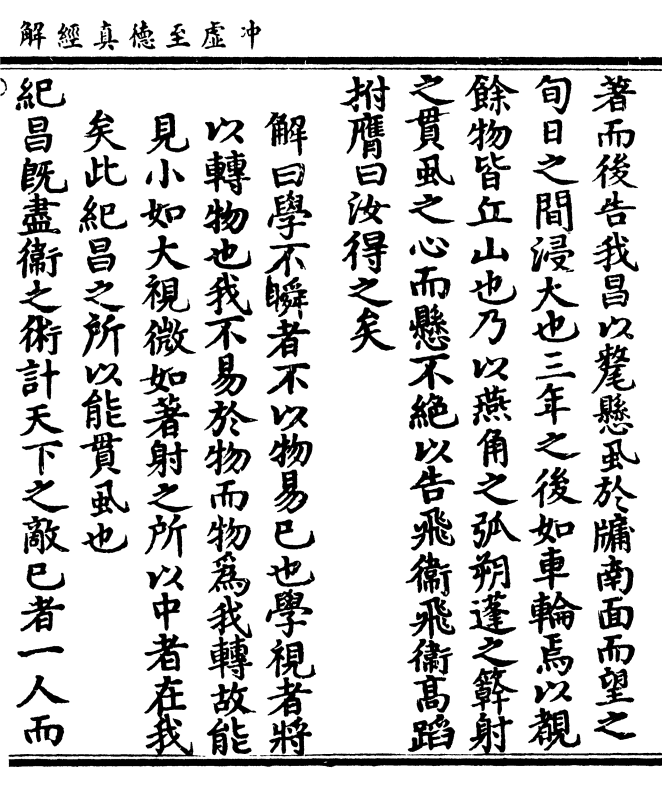 冲虛至德真經解
著而後告我昌以氂懸虱於牖南面而望之
旬日之間浸大也三年之後如車輪焉以覩
餘物皆丘山也乃以燕角之弧朔蓬之簳射
之貫虱之心而懸不絕以告飛衞飛衞高蹈
拊膺曰汝得之矣
解曰學不瞬者不以物易已也學視者將
以轉物也我不易於物而物爲我轉故能
見小如大視微如著射之所以中者在我
矣此紀昌之所以能貫虱也
紀昌既盡衞之術計天下之敵已者一人而